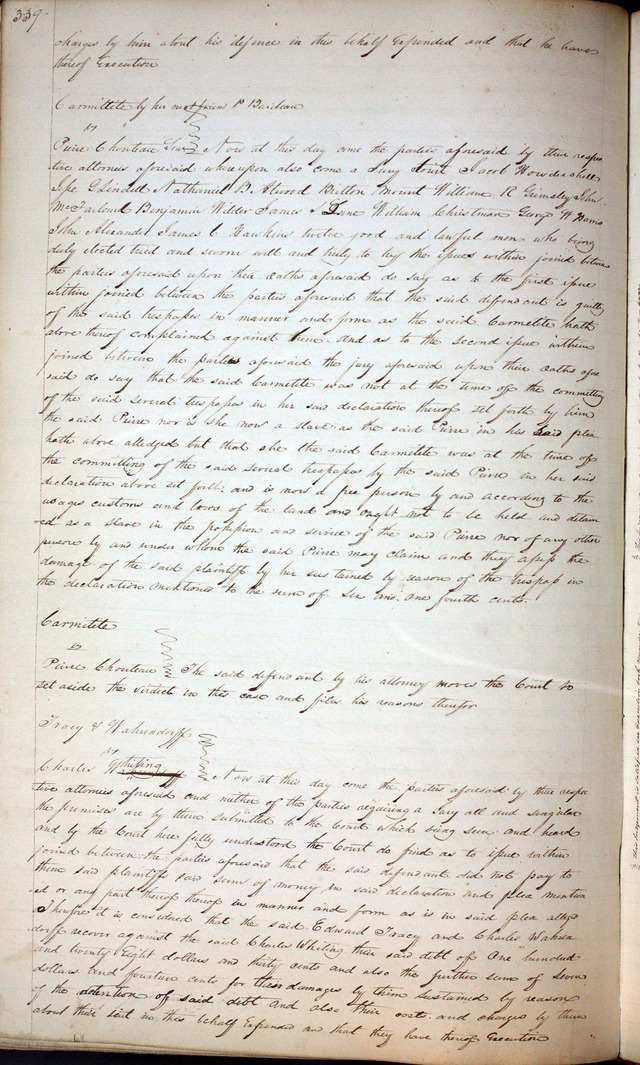 339.
charges by him about his defence in this behalf Expended and that he have
thereof Execution
Carmitete by her next friend P Baribeau
vs
Pierre Chouteau Senr Now at this day come the parties aforesaid by their respec
tive attorneys aforesaid whereupon also come a Jury Jacob
Nathaniel B. Atwood Britton Mount William R Grimsley John
McFarland Benjamin Wilder James S Lane William Christman George W Harris
John Alexander James C Hawkins twelve good and lawful men who being
duly elected tried and sworn well and truly to try the issues within joined between
the parties aforesaid upon their oaths aforesaid do say as to the first issue
within joined between the parties aforesaid that the said defendant is guilty
of the said trespasses in manner and form as the said Carmetite hath
above thereof complained against him. and as to the second issue within
joined between the parties aforesaid the jury aforesaid upon their oaths afore
said do say that he said Carmetite was not at the time of the committing
of the said several trespasses in her said declaration thereof set forth by him
the said Pierre nor is she now a slave as the said Pierre in his said plea
hath above alledged but that she the said Carmetite was at the time of
the committing of the said several trespasses by the said Pierre in her said
declaration above set forth and is now a free person by and according to the
usages customs and laws of the land and ought not to be held and detain
ed as a slave in the possession and service of the said Pierre nor of any other
person by and under whom the said Pierre may claim and they assess the
damage of the said plaintiff by her sustained by reason of the trespass in
the declaration mentioned to the sum of six and one fourth cents.
Carmitete
vs
Pierre Chouteau The said defendant by his attorney moves the Court to
set aside the verdict in this case and files his reasons therefor
Tracy & Wahrendorff
vs
Charles Whiting Now at this day come the parties aforesaid by their respec
tive attornies aforesaid and neither of the parties requiring a Jury all and singular
the premises are by them submitted to the Court which being seen and heard
and by the Court here fully understood the Court do find as to issue within
joined between the parties aforesaid that the said defendant did not pay to
them said plaintiffs said sums of money in said declaration and plea mention
ed or any part thereof thereof in manner and form as is in said plea alledged
Therefore it is considered that the said Edward Tracy and Charles Wahren
dorff recover against the said Charles Whiting their said debt of One hundred
and twenty Eight dollars and thirty cents and also the further sum of Seven
dollars and fourteen cents for their damages by them sustained by reason
of the detention of said debt and also their costs and charges by them
about their suit in this behalf Expended and that they have thereof Execution